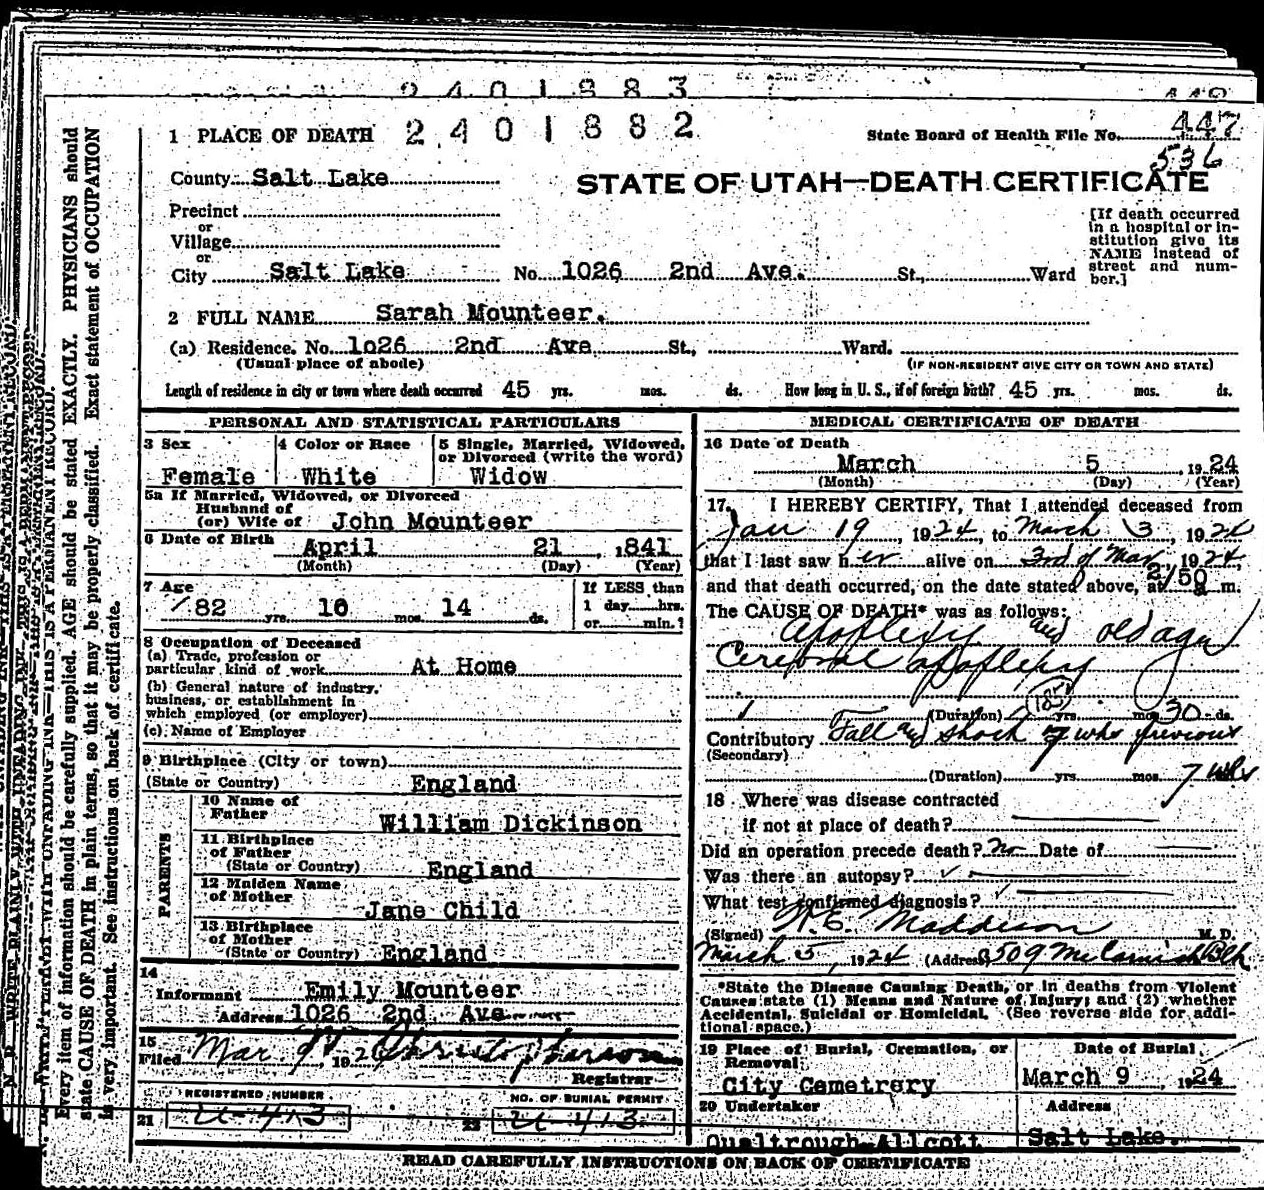 2401883
1 PLACE OF DEATH 2401882 State Board of Health File No. 447
536
County Salt Lake
STATE OF UTAH—DEATH CERTIFICATE
Precinct
or
Village
or
City Salt Lake No. 1026 2nd Ave. St., Ward
[If death occurred
in a hospital or in-
stitution give its
NAME instead of
street and num-
ber.]
2 FULL NAME Sarah Mounteer.
(a) Residence. No. 1o26 2nd Ave St., Ward.
(Usual place of abode) (IF NON-RESIDENT GIVE CITY OR TOWN AND STATE)
Length of residence in city or town where death occurred 45 yrs. mos. ds. How long in U. S., if of foreign birth? 45 yrs. mos. ds.
PERSONAL AND STATISTICAL PARTICULARS
3 Sex
Female
4 Color or Race
White
5 Single, Married, Widowed,
or Divorced (write the word)
Widow
5a If Married, Widowed, or Divorced
Husband of
(or) Wife of John Mounteer
6 Date of Birth April 21 , 1841
(Month) (Day) (Year)
7 Age
82 yrs. 10 mos. 14 ds.
If LESS than
1 day hrs.
or min.?
8 Occupation of Deceased
(a) Trade, profession or
particular kind of work At Home
(b) General nature of industry,
business, or establishment in
which employed (or employer)
(c) Name of Employer
9 Birthplace (City or town)
(State or Country) England
PARENTS
10 Name of
Father William Dickinson
11 Birthplace
of Father
(State or Country) England
12 Maiden Name
of Mother Jane Child
13 Birthplace
of Mother
(State or Country) England
14
Informant Emily Mounteer
Address 1026 2nd Ave
15
Filed Mar. 9 192
Registrar
REGISTERED NUMBER
21 U-413
NO. OF BURIAL PERMIT
22 U-413
MEDICAL CERTIFICATE OF DEATH
16 Date of Death
March 5 , 1924
(Month) (Day) (Year)
17. I HEREBY CERTIFY, That I attended deceased from
Jan 19 , 1924, to March 3 , 1924
that I last saw her alive on 3rd of Mar, 1924,
and that death occurred, on the date stated above, at 2/50 a m.
The CAUSE OF DEATH* was as follows:
apoplexy and old age
Cerebral apoplexy
(Duration) yrs. mos. 30 ds.
Contributory Fall and shock 7 wks previous
(Secondary)
(Duration) yrs. mos. 7 wks
18 Where was disease contracted
if not at place of death?
Did an operation precede death? No Date of
Was there an autopsy?
What test confirmed diagnosis?
(Signed) M. D.
March 5, 1924 (Address) 509 McCornick Blk
*State the Disease Causing Death, or in deaths from Violent
Causes state (1) Means and Nature of Injury; and (2) whether
Accidental, Suicidal or Homicidal. (See reverse side for addi-
tional space.)
19 Place of Burial, Cremation, or
Removal
City Cemetrery
Date of Burial
March 9 , 1924
20 Undertaker
Qualtrough-Allcott
Address
Salt Lake.
READ CAREFULLY INSTRUCTIONS ON BACK OF CERTIFICATE
Every item of information should be carefully supplied. AGE should be stated EXACTLY. PHYSICIANS should
state CAUSE OF DEATH in plain terms, so that it may be properly classified. Exact statement of OCCUPATION
is very important. See instructions on back of certificate.